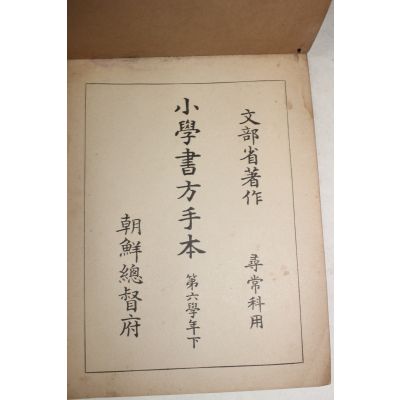 文部省著作
尋常科用
小學書方手本
第六學年下
朝鮮總督府